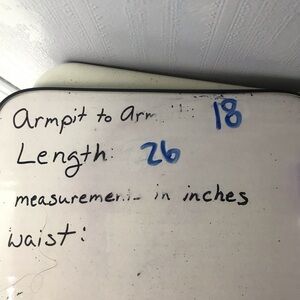 Armpit to Arm 18
Length: 26
measurement in inches
waist: